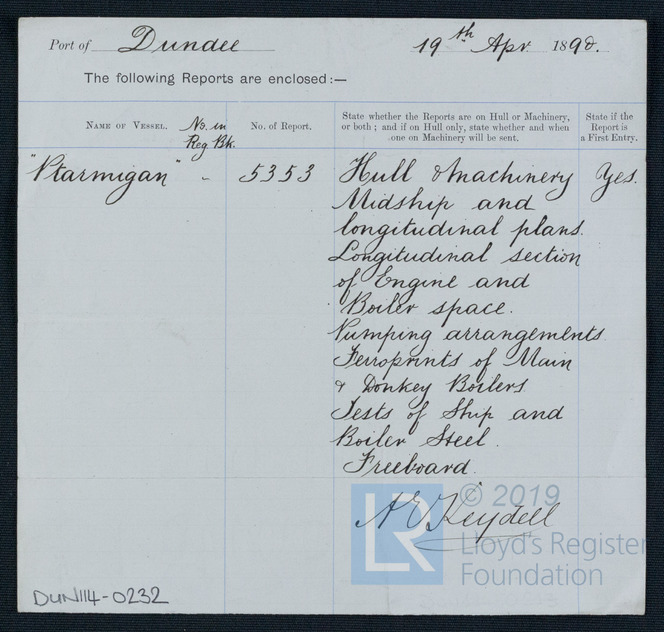 Port of Dundee 19th Apr 1890.
The following Reports are enclosed:—
NAME OF VESSEL. No. in Reg Bk.
No. of Report.
State whether the Reports are on Hull or Machinery, or both; and if on Hull only, state whether and when one on Machinery will be sent.
State if the Report is a First Entry.
"Ptarmigan" - 5353 Hull & Machinery Yes.
Midship and
longitudinal plans.
Longitudinal section
of Engine and
Boiler space.
Pumping arrangements
Ferroprints of Main
& Donkey Boilers
Tests of Ship and
Boiler Steel.
Freeboard.
A E Keydell
LR © 2019
Lloyd's Register
Foundation
DUN114-0232